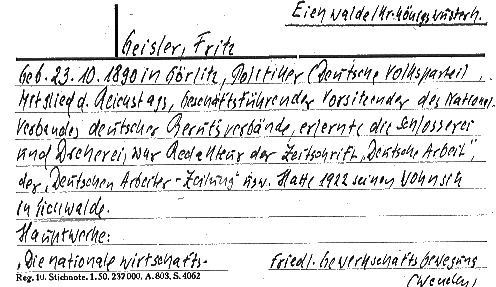 Eichwalde/Kr. Königswusterh.
Geisler, Fritz
Geb. 23.10.1890 in Görlitz, Politiker (Deutsche Volkspartei,
Mitglied d. Reichstags, Geschäftsführender Vorsitzender des National-
verbandes deutscher Berufsverbände, erlernte die Schlosserei
und Dreherei, war Redakteur der Zeitschrift „Deutsche Arbeit",
der „Deutschen Arbeiter-Zeitung" usw. Hatte 1922 seinen Wohnsitz
in Eichwalde.
Hauptwerke:
„Die nationale Wirtschafts-
Friedl. Gewerkschaftsbewegung
Reg. 10. Stichnote. 1. 50. 237000. A. 803. S. 4062